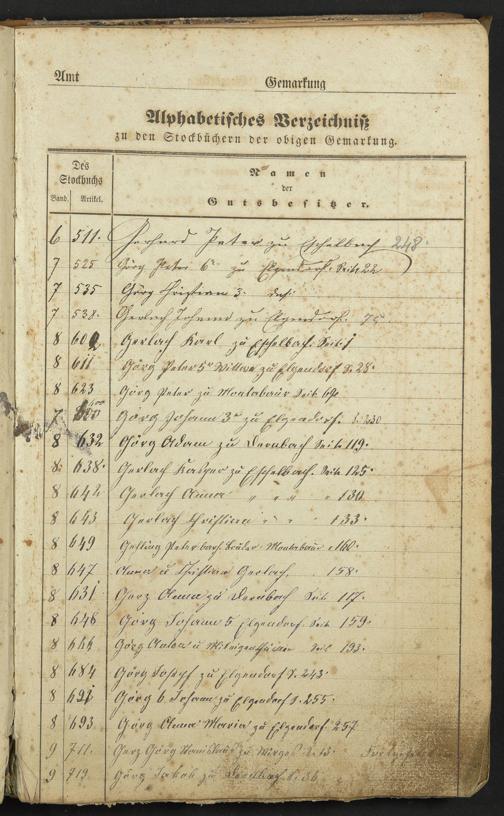 Amt Gemarkung
Alphabetisches Verzeichniß
zu den Stockbüchern der obigen Gemarkung.
Des Stockbuchs
Band. Artikel.
Namen
der
Gutsbesitzer.
6 511. Gerhard Peter zu Eschelbach 248.
7 525 Görg Peter 6r zu Elgendorf. Seite 22
7 535 Görg Christian 3. das.
7 538. Gerlach Johann zu Elgendorf. 75
8 602 Gerlach Karl zu Eschelbach. Seite 1
8 611 Görg Peter 5r Wittwe zu Elgendorf S. 28.
8 623 Görg Peter zu Montabaur Seite 69.
7 Görg Johann 3r zu Elgendorf. S. 230
8 632 Görg Adam zu Dernbach Seite 119.
8. 638. Gerlach Kaspar zu Eschelbach. Seite 125.
8 642 Gerlach Anna " " " " 130
8 643 Gerlach Christina " " " 133.
8 649 Peter Montabaur 160.
8 647 Anna u Christian Gerlach. 158.
8 631 Gerz Anna zu Dernbach Seite 117.
8 648 Görg Johann 5 Elgendorf. Seite 159.
8 666 Görg Anton u Miteigenthümer Seite 193.
8 684 Görg Josef zu Elgendorf S. 243.
8 691 Görg 6. Johann zu Elgendorf S. 255.
8 693 Görg Anna Maria zu Elgendorf 257
9 711. Gerz Görg Stanislaus zu Wirges
9 719. Görg Jakob zu Dernbach